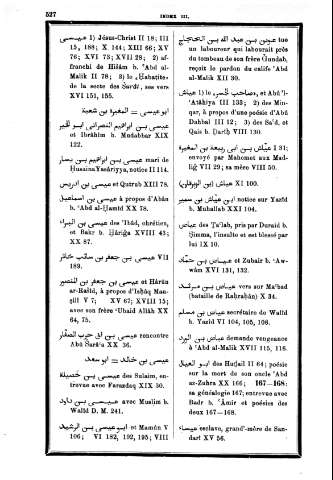 527
INDEX III.
عيسى 1) Jésus-Christ II 18; III
15, 188; X 144; XIII 66; XV
76; XVI 73; XVII 28; 2) af-
franchi de Hišâm b. ʿAbd al-
Malik II 78; 3) le
de la secte des Šarâʾ, ses vers
XVI 151, 155.
ابو عيسى = المغيرة بن شعبة
عيسى بن ابراهيم النصرانى ابو الخير
et Ibrâhîm b. Mudabbir XIX
122.
عيسى بن يسار mari de
Ḥusaina Yasâriyya, notice II 114.
عيسى بن ادريس et Quṭrub XIII 78.
عيسى بن اسماعيل à propos d'Abân
b. ʿAbd al-Ḥamîd XX 78.
عيسى بن البراء des ʿIbâd, chrétien,
et Bakr b. Ḫâriǧa XVIII 43;
XX 87.
عيسى بن جعفر بن سائب خاثر VII
189.
عيسى بن جعفر بن المنصور et Hârûn
ar-Rašîd, à propos d'Isḥâq Mau-
ṣilî V 7; XV 67; XVIII 15;
avec son frère ʿUbaid Allâh XX
64, 75.
عيسى بن ابى حرب الصفار rencontre
Abû Šarâʿa XX 36.
عيسى بن خالد = ابو سعد
عيسى بن خصيلة des Sulaim, en-
trevue avec Farazdaq XIX 30.
عيسى بن داود avec Muslim b.
Walîd D. M. 241.
ابو عيسى بن الرشيد et Mamûn V
106; VI 182, 192, 195; VIII
عون بن عبد الله بن tue
un laboureur qui labourait près
du tombeau de son frère Ǧundab,
reçoit le pardon du calife ʿAbd
al-Malik XII 30.
عياش 1) le, et Abûʾl-
ʿAtâhiya III 133; 2) des Min-
qar, à propos d'une poésie d'Abû
Dahbal III 12; 3) des Saʿd, et
Qais b. Ḍarîḥ VIII 130.
عياش بن ابى ربيعة بن المغيرة I 31;
envoyé par Mahomet aux Mad-
liǧ VII 29; sa mère VIII 50.
عياش بن (ابن الزبرقان) XI 100.
عياش بن notice sur Yazîd
b. Muhallab XXI 104.
عياض des Ṯaʿlab, pris par Duraid b.
Ṣimma, l'insulte et est blessé par
lui IX 10.
عياض بن حماد et Zubair b. ʿAw-
wâm XVI 131, 132.
عياض بن مرثد vers sur Maʿbad
(bataille de Raḥraḥân) X 34.
عياض بن مسلم secrétaire de Walîd
b. Yazîd VI 104, 105, 108.
demande vengeance
à ʿAbd al-Malik XVII 115, 116.
ابو العيال des Huḏail II 64; poésie
sur la mort de son oncle ʿAbd
az-Zuhra XX 166; 167—168:
sa généalogie 167; entrevue avec
Badr b. ʿÂmir et poésies des
deux 167—168.
عيساء esclave, grand'mère de San-
dart XV 56.